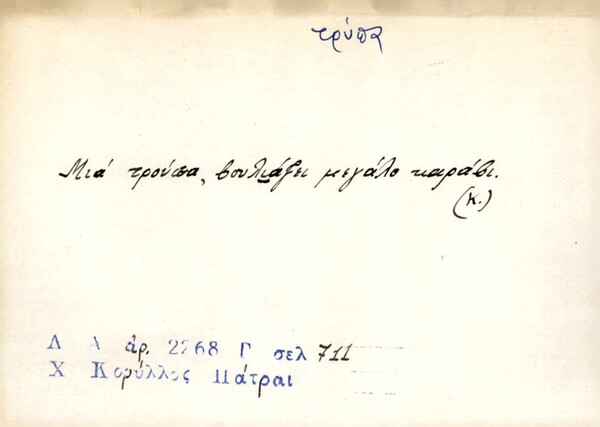 τρύπα
Μιά τρούπα, βουλιάζει μεγάλο καράβι.
(Κ.)
Λ Α ἀρ. 2268 Γ σελ 711
Χ Κορύλλος Πάτραι